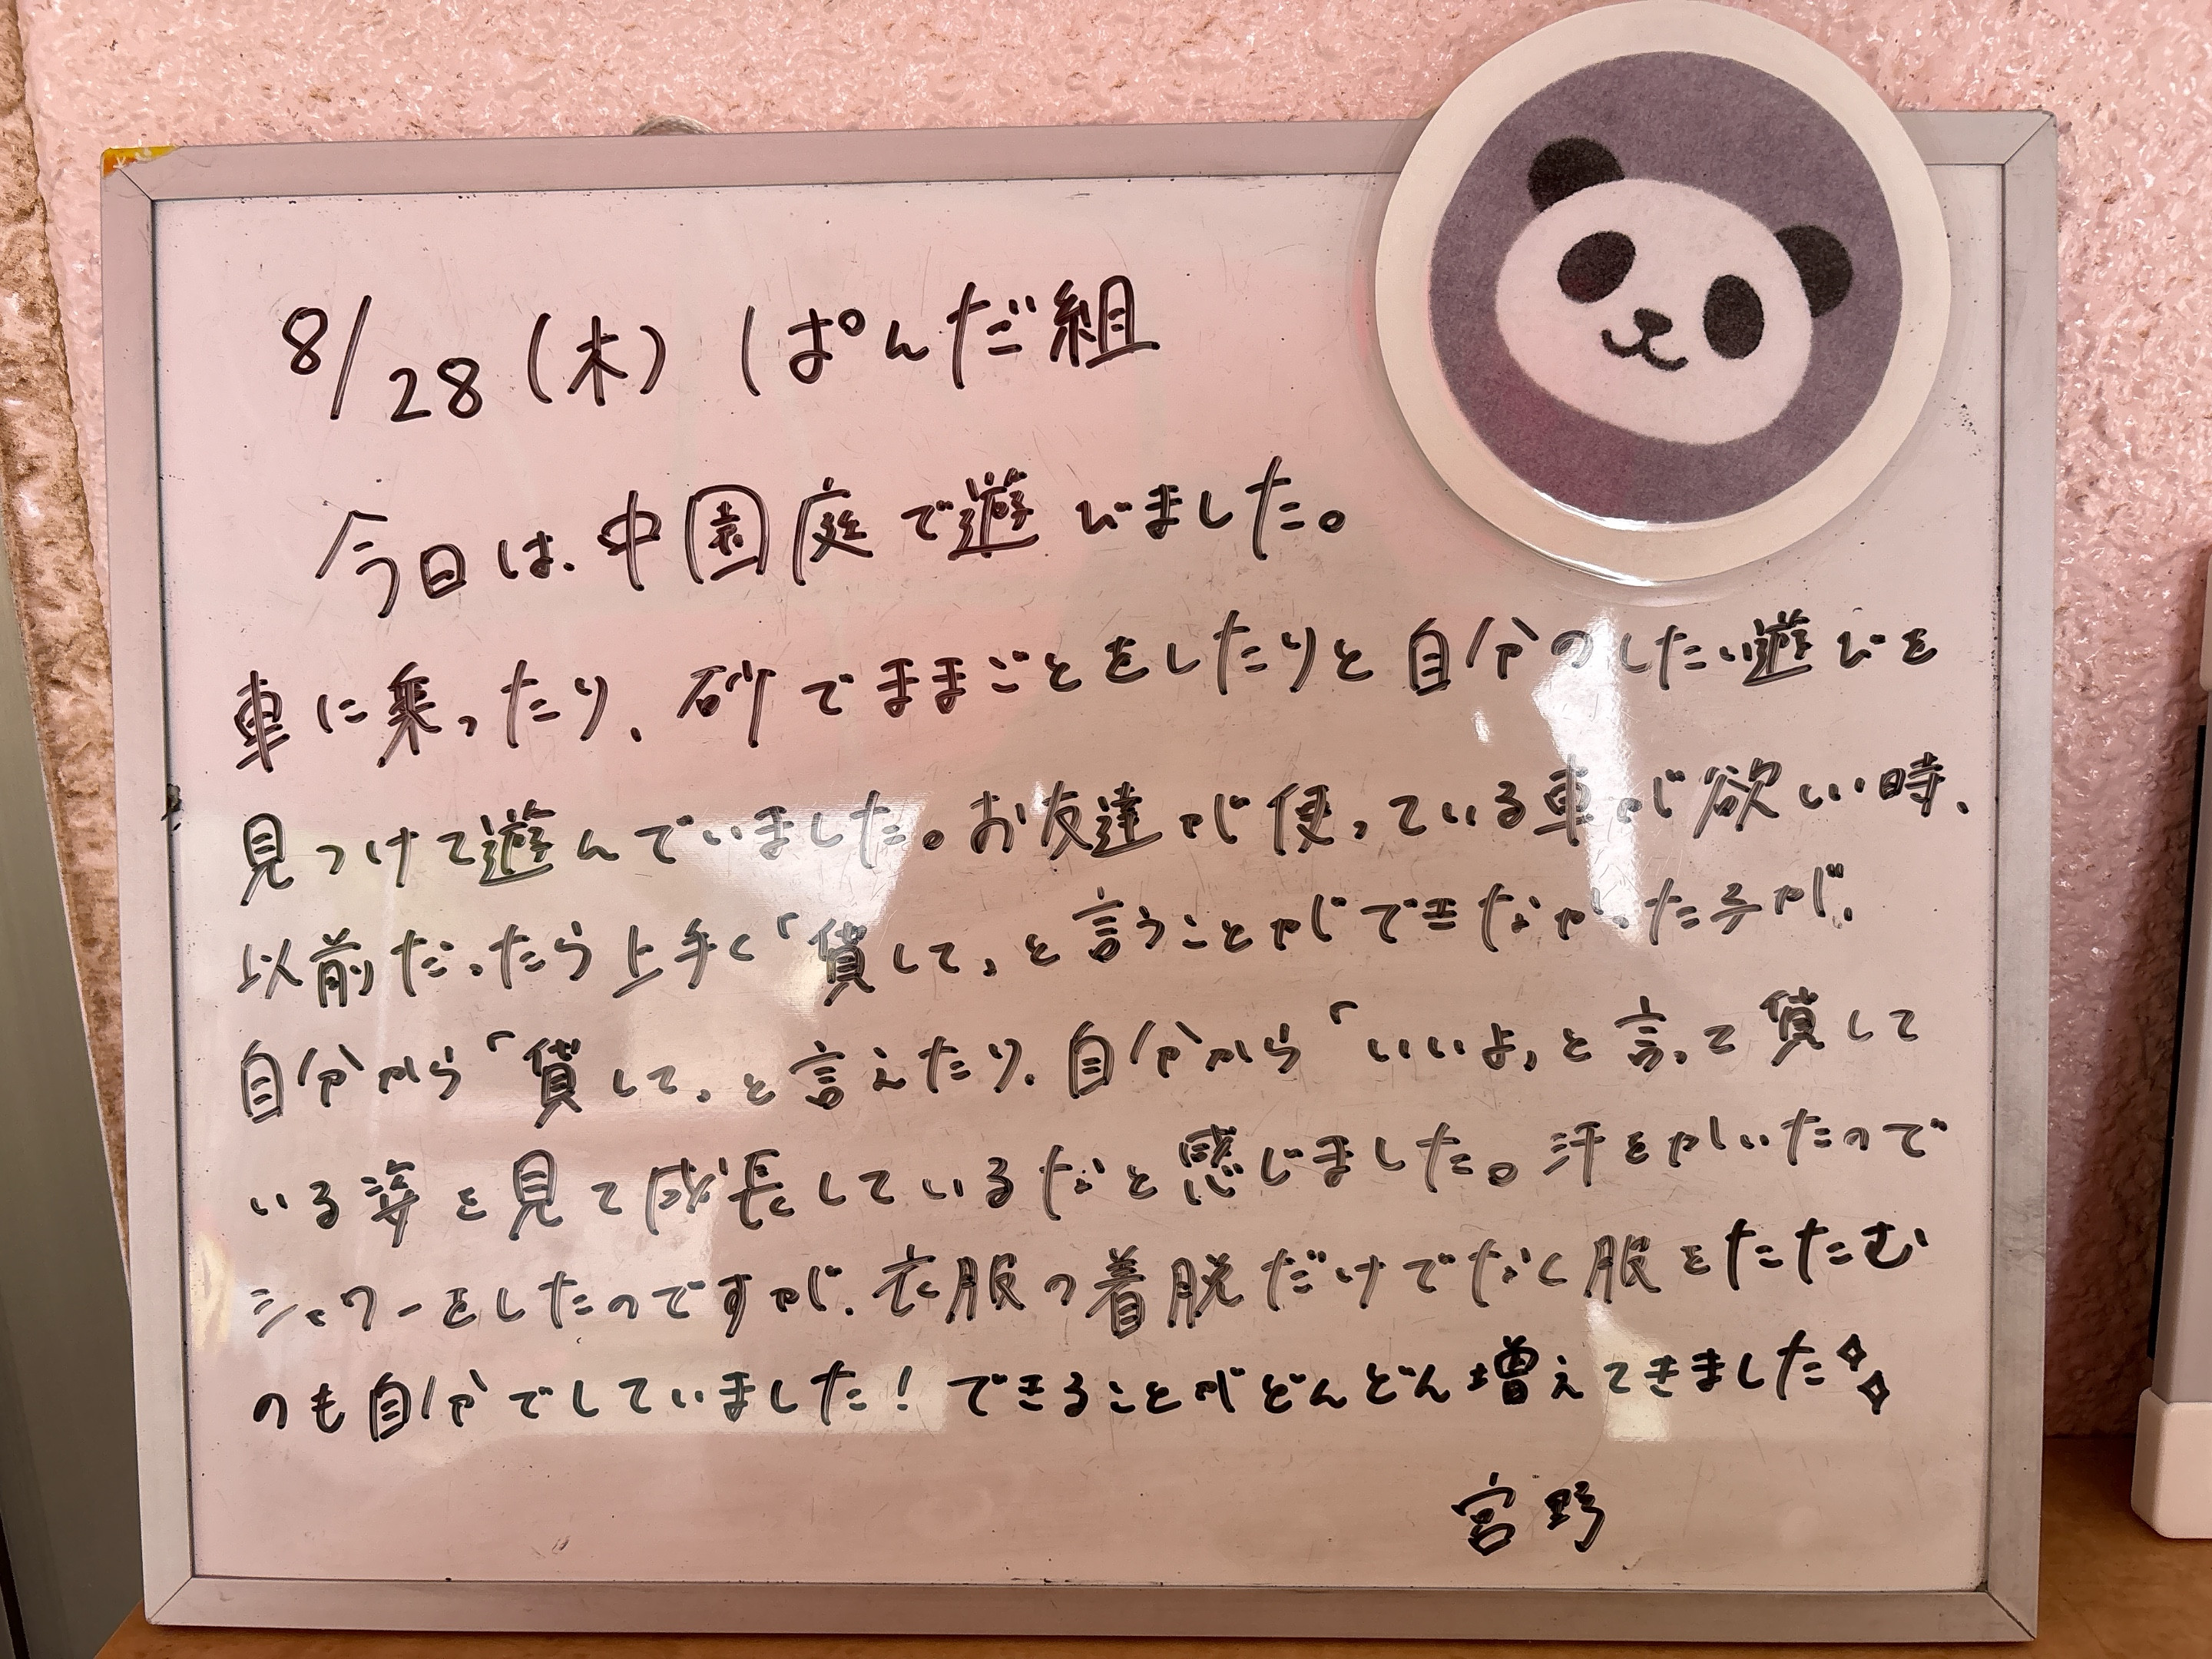 8/28(木) ぱんだ組
今日は、中園庭で遊びました。
車に乗ったり、砂でままごとをしたりと自分のしたい遊びを
見つけて遊んでいました。お友達が使っている車が欲しい時、
以前だったら上手く「貸して」と言うことができなかった子が、
自分から「貸して」と言えたり、自分から「いいよ」と言って貸して
いる姿を見て成長しているなと感じました。汗をかいたので
シャワーをしたのですが、衣服の着脱だけでなく服をたたむ
のも自分でしていました！できることがどんどん増えてきました✧✧
宮野